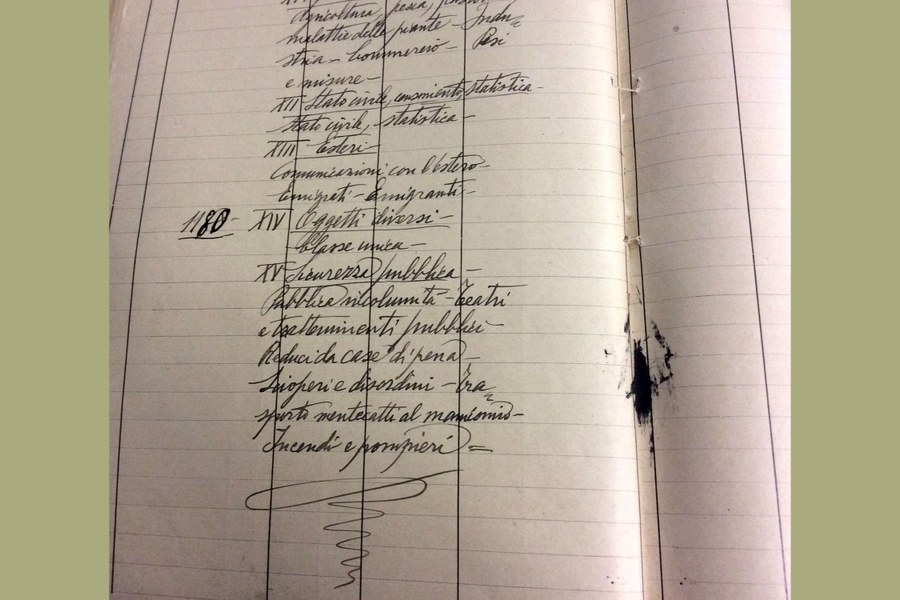 Agricoltura, pesca,
malattie delle piante - Indu=
stria - Commercio - Pesi
e misure -
XII Stato civile, censimento, statistica -
Stato civile, - statistica -
XIII Esteri -
Comunicazioni con l'Estero -
Emigrati - Emigranti -
1180 - XIV Oggetti diversi -
Classe unica -
XV Sicurezza pubblica -
Pubblica incolumità - Teatri
e trattenimenti pubblici -
Reduci da case di pena -
Scioperi e disordini - Tra=
sporto mentecatti al manicomio -
Incendi e pompieri =